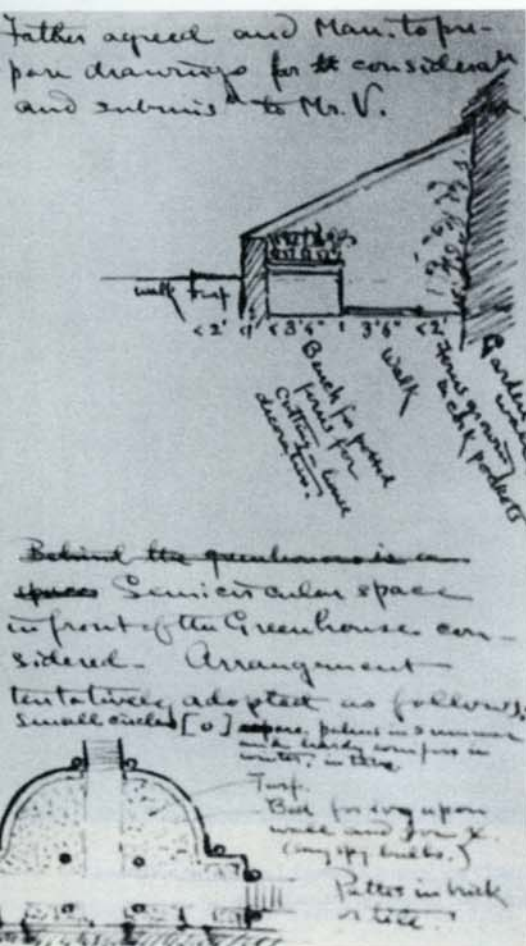 Father agreed and Man. to pre-
pare drawings for consideratn
and submisn to Mr. V.
walk turf
<2' <1' <3'6" 3'6" <2'
Bench for potted
ferns for
cutting & house
decoration.
Walk
Ferns growing
in cork pockets
Garden
wall
Behind the greenhouse is an
space Semicircular space
in front of the Greenhouses con-
sidered. Arrangement
tentatively adopted as follows.
small circles [o] palms in summer
and hardy conifers in
winter, in tubs
Turf.
Bed for ivy upon
wall and for
bulbs.
Paths in brick
or tile.